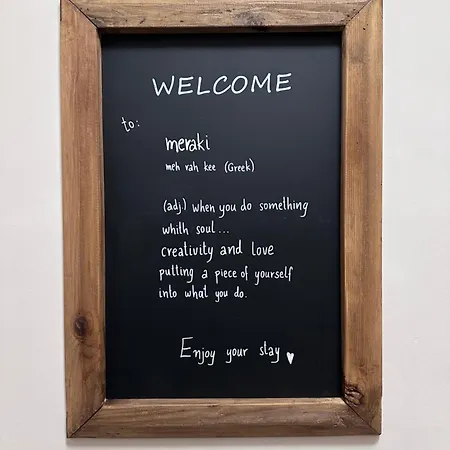 WELCOME
to:
meraki
meh rah kee (Greek)
(adj.) when you do something
whith soul...
creativity and love
putting a piece of yourself
into what you do.
Enjoy your stay ♥